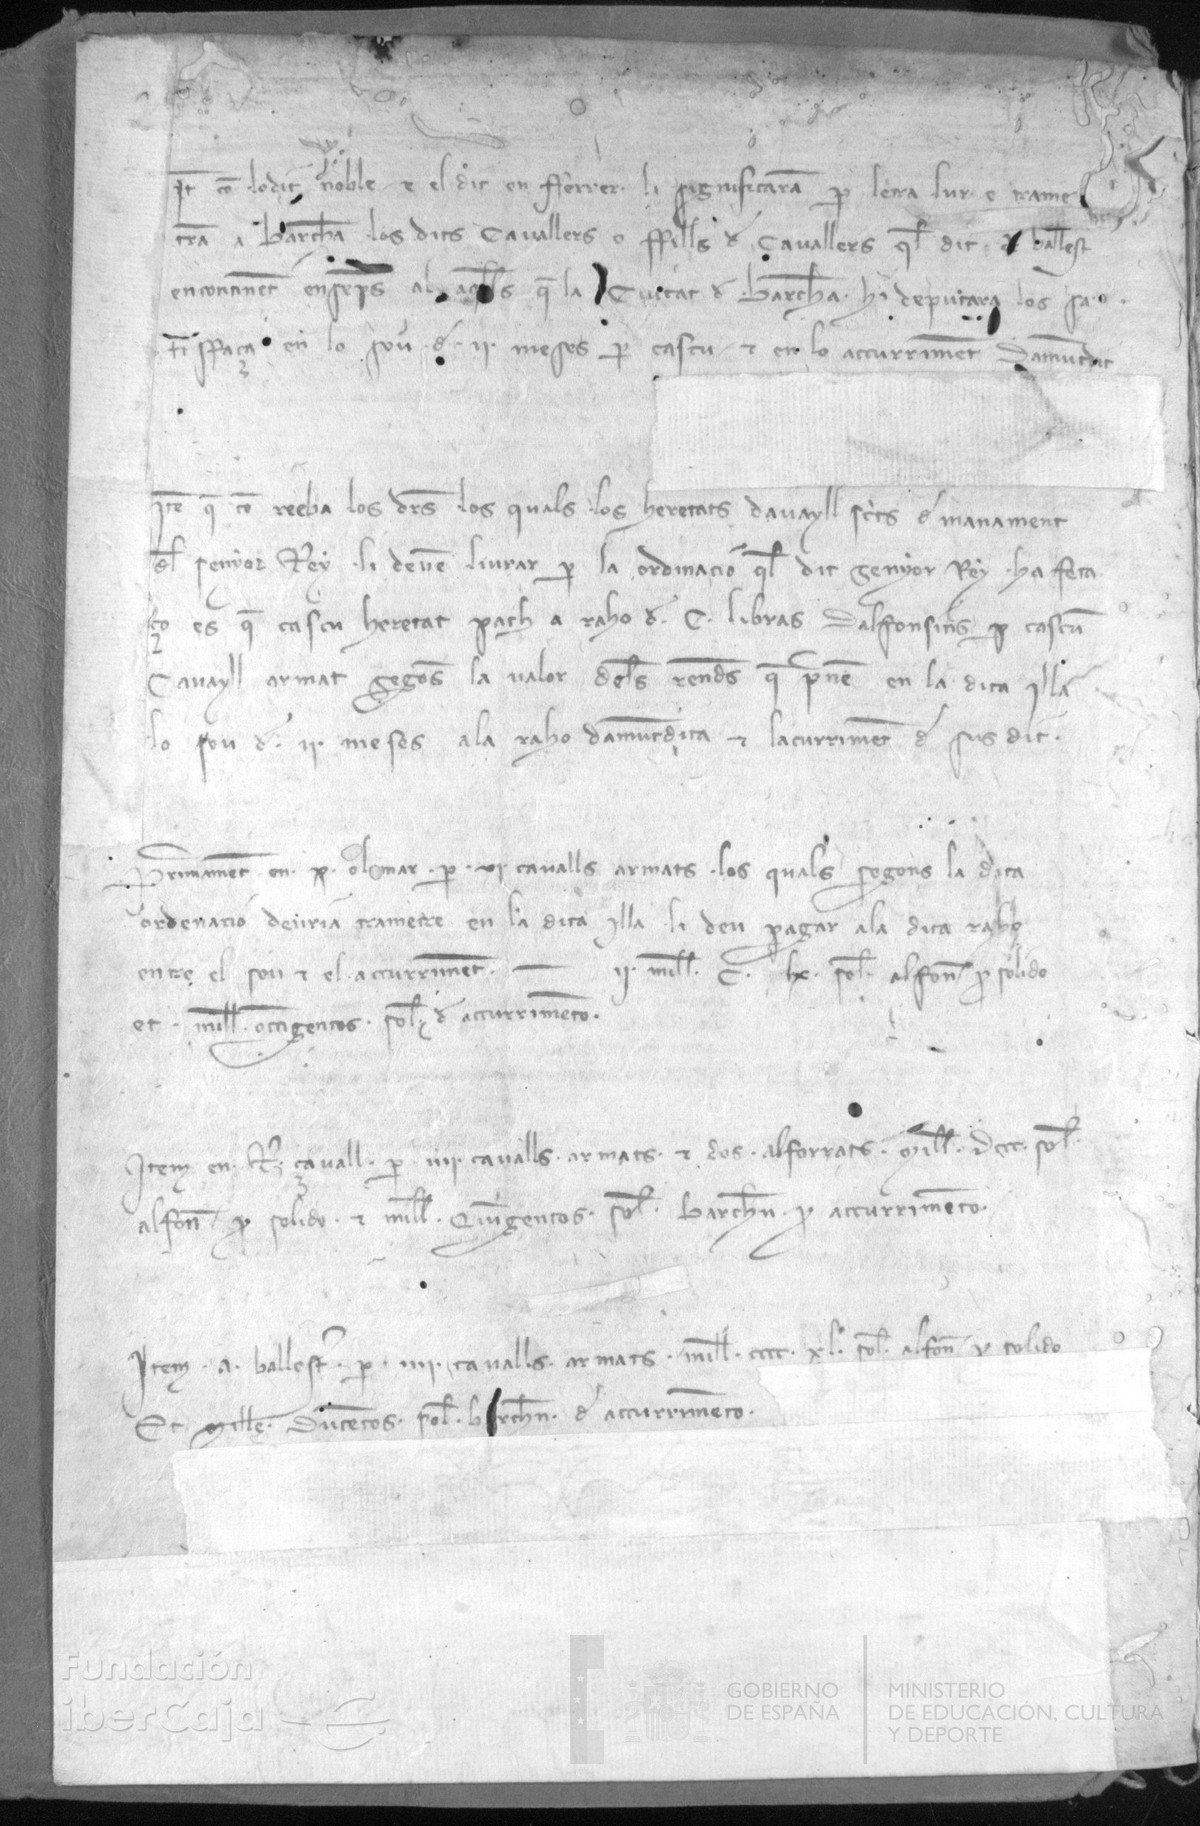 It co lodit noble e el dit en fferrer li significara p letra lur e trame
tra a Barchna los dits Cavallers o ffills d Cavallers ql dit ballest
encontinet ensems ab aqlls q la Ciutat d Barchna hi deputara los sa
tisffaça en lo sou d .ii. meses p cascu e en lo accurriment Damutdit
Ite q co reeba los drs los quals los heretats davayll scrits d manament
dl senyor Rey li deve liurar p la ordinacio ql dit senyor Rey ha feta
ço es q cascu heretat pach a raho d .C. libras Dalfonsins p cascu
Cavayll armat segons la valor dels rends q pne en la dita Illa
lo sou d .ii. meses ala raho damutdita e lacurrimet d sus dit.
Primamet en p. olmar p .vi cavalls armats los quals segons la dita
ordenacio deuria trametre en la dita Illa li deu pagar ala dita raho
entre el sou e el accurrimet. ii. mill. C. lx. sol. alfon p solido
et mill. octigentos. sol. d accurrimeto.
Item en R. çavall. p .iiii. cavalls armats e dos alforrats. Mill. Dccc. sol.
alfon p solido e mill. Quigentos. sol. Barchn. p accurrimeto.
Item .a. ballest p .iiii. cavalls armats mill. cccc. xl. sol. alfon p solido
Et mille Ducetos. sol. barchn. d accurrimeto.
Fundación
iberCaja
GOBIERNO
DE ESPAÑA
MINISTERIO
DE EDUCACIÓN, CULTURA
Y DEPORTE